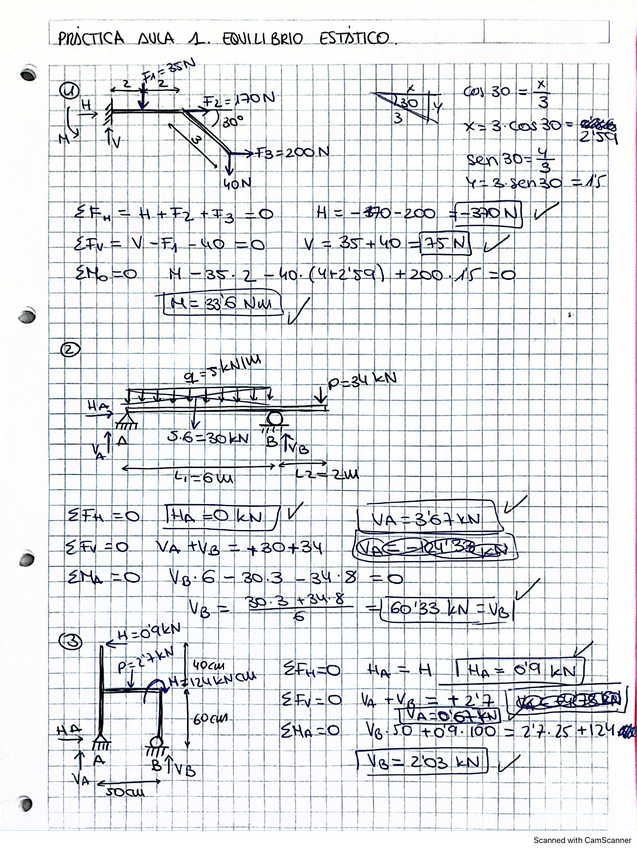 PRÁCTICA AULA 1. EQUILIBRIO ESTÁTICO.
1
F1=35N
2 2
H
F2=170N
30°
M
V
3
F3=200N
40N
x
30
y
3
cos 30 = x/3
x = 3·cos 30 = 2'59
sen 30 = y/3
y = 3·sen 30 = 1'5
ΣF_H = H + F2 + F3 = 0 H = -170-200 = -370 N
ΣF_V = V - F1 - 40 = 0 V = 35+40 = 75 N
ΣM_O = 0 M - 35·2 - 40·(4+2'59) + 200·1'5 = 0
M = 33'6 Nm
2
q = 5 kN/m
P = 34 kN
HA
A
VA
5·6 = 30 kN
B
VB
L1 = 6m
L2 = 2m
ΣF_H = 0 HA = 0 kN VA = 3'67 kN
ΣF_V = 0 VA + VB = +30+34
ΣM_A = 0 VB·6 - 30·3 - 34·8 = 0
VB = (30·3 + 34·8)/6 = 60'33 kN = VB
3
H = 0'9 kN
P = 2'7 kN
40cm
M = 124 kN cm
60cm
HA
A
B
VB
VA
50cm
ΣF_H = 0 HA = H HA = 0'9 kN
ΣF_V = 0 VA + VB = +2'7
VA = 0'67 kN
ΣM_A = 0 VB·50 + 0'9·100 = 2'7·25 + 124
VB = 2'03 kN
Scanned with CamScanner